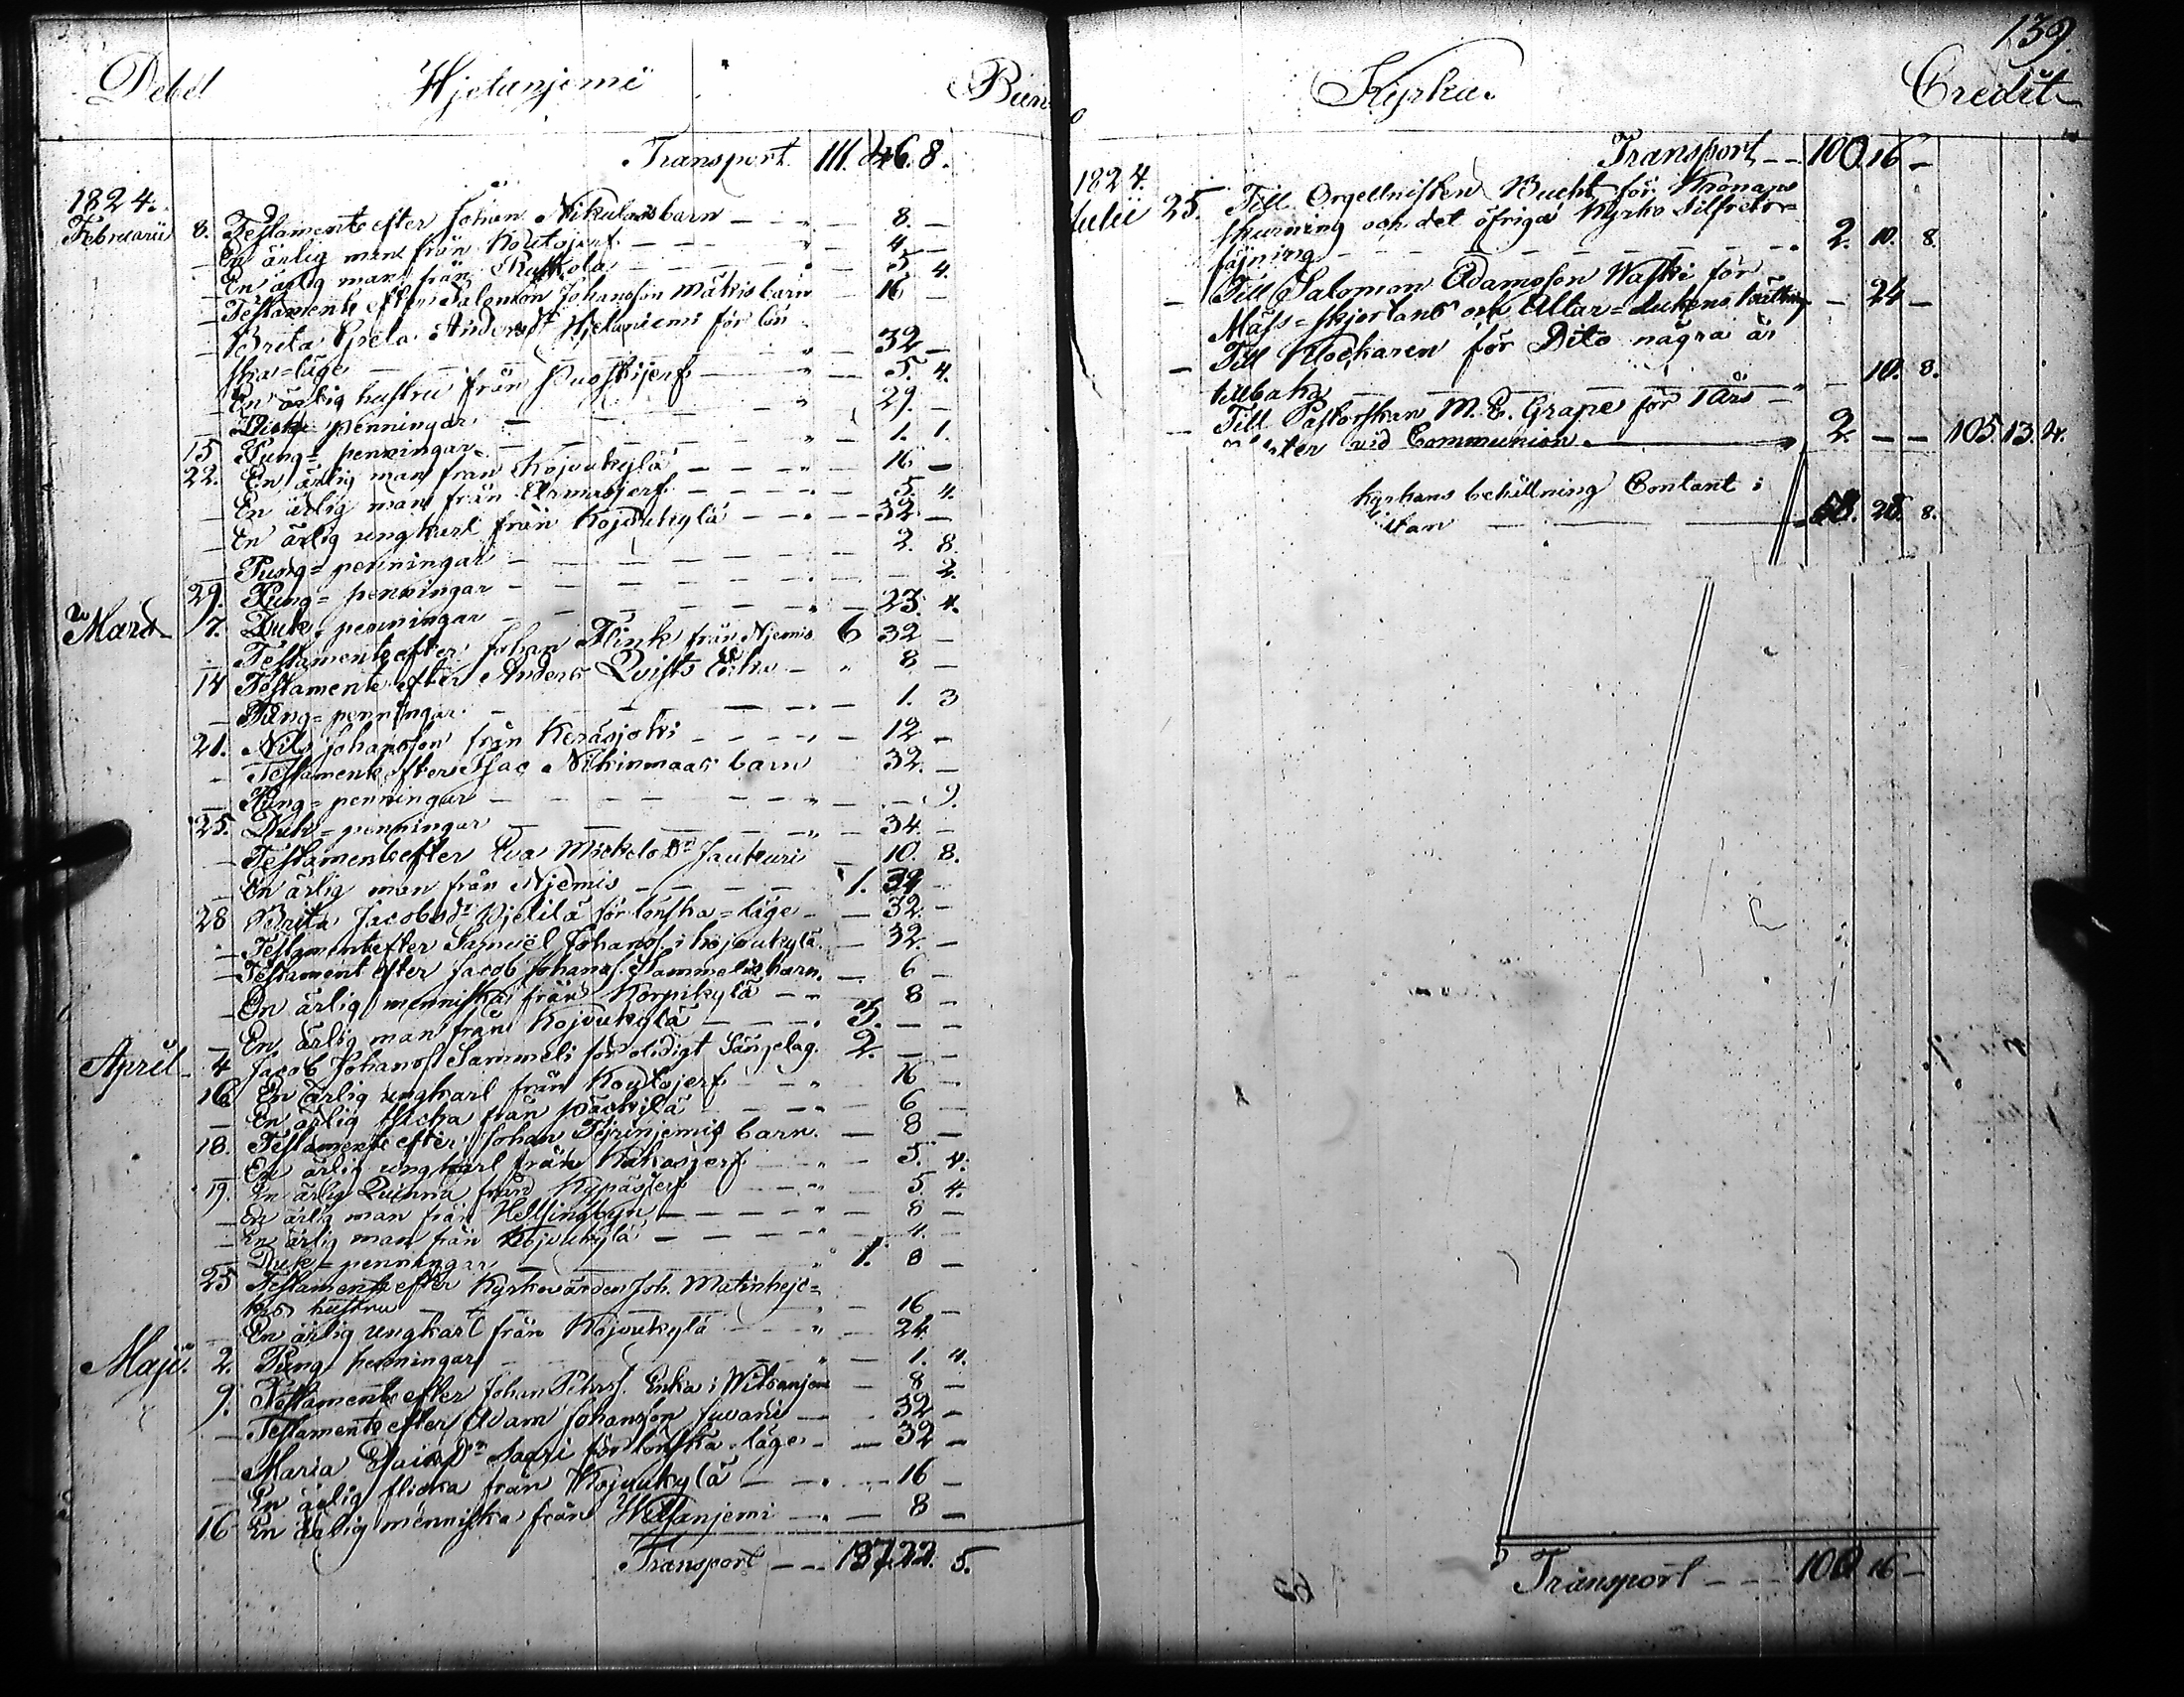 139.
Debet Hjetanjemi Bün
Transport 111. 46. 8.
1824.
Februarii 8. Testamente efter Johan Nikulas barn — 8. —
— En ärlig man från Koutojerf — 4 —
— En ärlig man från Ruskola — 5. 4.
— Testamente efter Salomon Johansson Mäkis barn — 16 —
— Brita Greta Andersdr Hjetaniemi för lön
ska=läge — 32 —
— En ärlig hustru från Puostijerf — 5. 4.
— Duk= penningar — 29. —
15 Pung= penningar — 1. 1.
22. En ärlig man från Kojvukylä — 16 —
— En ärlig man från Armasjerf — 5. 4.
— En ärlig ungkarl från Kojvukylä — 32 —
— Pung= penningar — 2. 8.
29. Pung= penningar — 2.
Martii 7. Duk= penningar — 23. 4.
— Testamente efter Johan Flink från Njemis 6 32 —
14 Testamente efter Anders Qvists Enka — 8 —
— Pung= penningar — 1. 3
21. Nils Johansson från Keräsjoki — 12 —
— Testamente efter Isac Nikinmaas barn 32. —
— Pung= penningar — 9.
25. Duk= penningar — 34 —
— Testamente efter Eva Mickelsdr Jauhuri — 10. 8.
— En ärlig man från Njemis — 1. 32 —
28 Brita Jacobsdr Pjetilä för lönska=läge — 32 —
— Testamente efter Samuel Johanss. i Kojvukylä — 32. —
— Testament efter Jacob Johanss. Sammelis barn. — 6 —
— En ärlig menniska från Korpikylä — 8 —
— En ärlig man från Kojvukylä — 3. — —
April 4 Jacob Johanss Sammeli för olidigt Sängelag. 2. — —
16 En ärlig ungkarl från Koutojerf — 16 —
— En ärlig flicka från Päckilä — 6 —
18. Testamente efter Johan Tejrinjemis barn. — 8 —
— En ärlig ungkarl från Kukasjerf — 5. 4.
19. En ärlig Quinna från Kypäsjerf — 5. 4.
— En ärlig man från Helsingbyn — 8 —
— En ärlig man från Kojvukylä — 4. —
— Duk= penningar 1. 8 —
25 Testamente efter Kyrkovärden Joh. Matinheje=
kis hustru — 16 —
— En ärlig ungkarl från Kojvukylä — 24.
Maji. 2. Pung penningar — 1. 4.
9. Testamente efter Johan Pehrs. Enka i Witsanjemi — 8 —
— Testamente efter Adam Johansson Juvani — 32 —
— Maria Esaiædr Saari för lönska=läge — 32 —
— En ärlig flicka från Kojvukylä — 16 —
16 En ärlig menniska från Witsanjemi — 8 —
Transport — 137 22. 5.
Kyrka. Credit
Transport — 100 16 —
1824.
Julii 25. Till Orgellnisten Bucht för Kronans
skurning och det öfriga Kyrko
fäjning — 2. 10. 8.
— Till Salomon Adamsson Waski för
Mäss=skjortans och Altar=dukens — 24 —
— Till Klockaren för Dito några år
tillbaka — 10. 8.
— Till Pastorskan M. E. Grape för 1 Års
vid Communion — 2. — — 105. 13. 4.
Kyrkans behållning Contant i
— 58. 28. 8.
Transport — 100 16 —